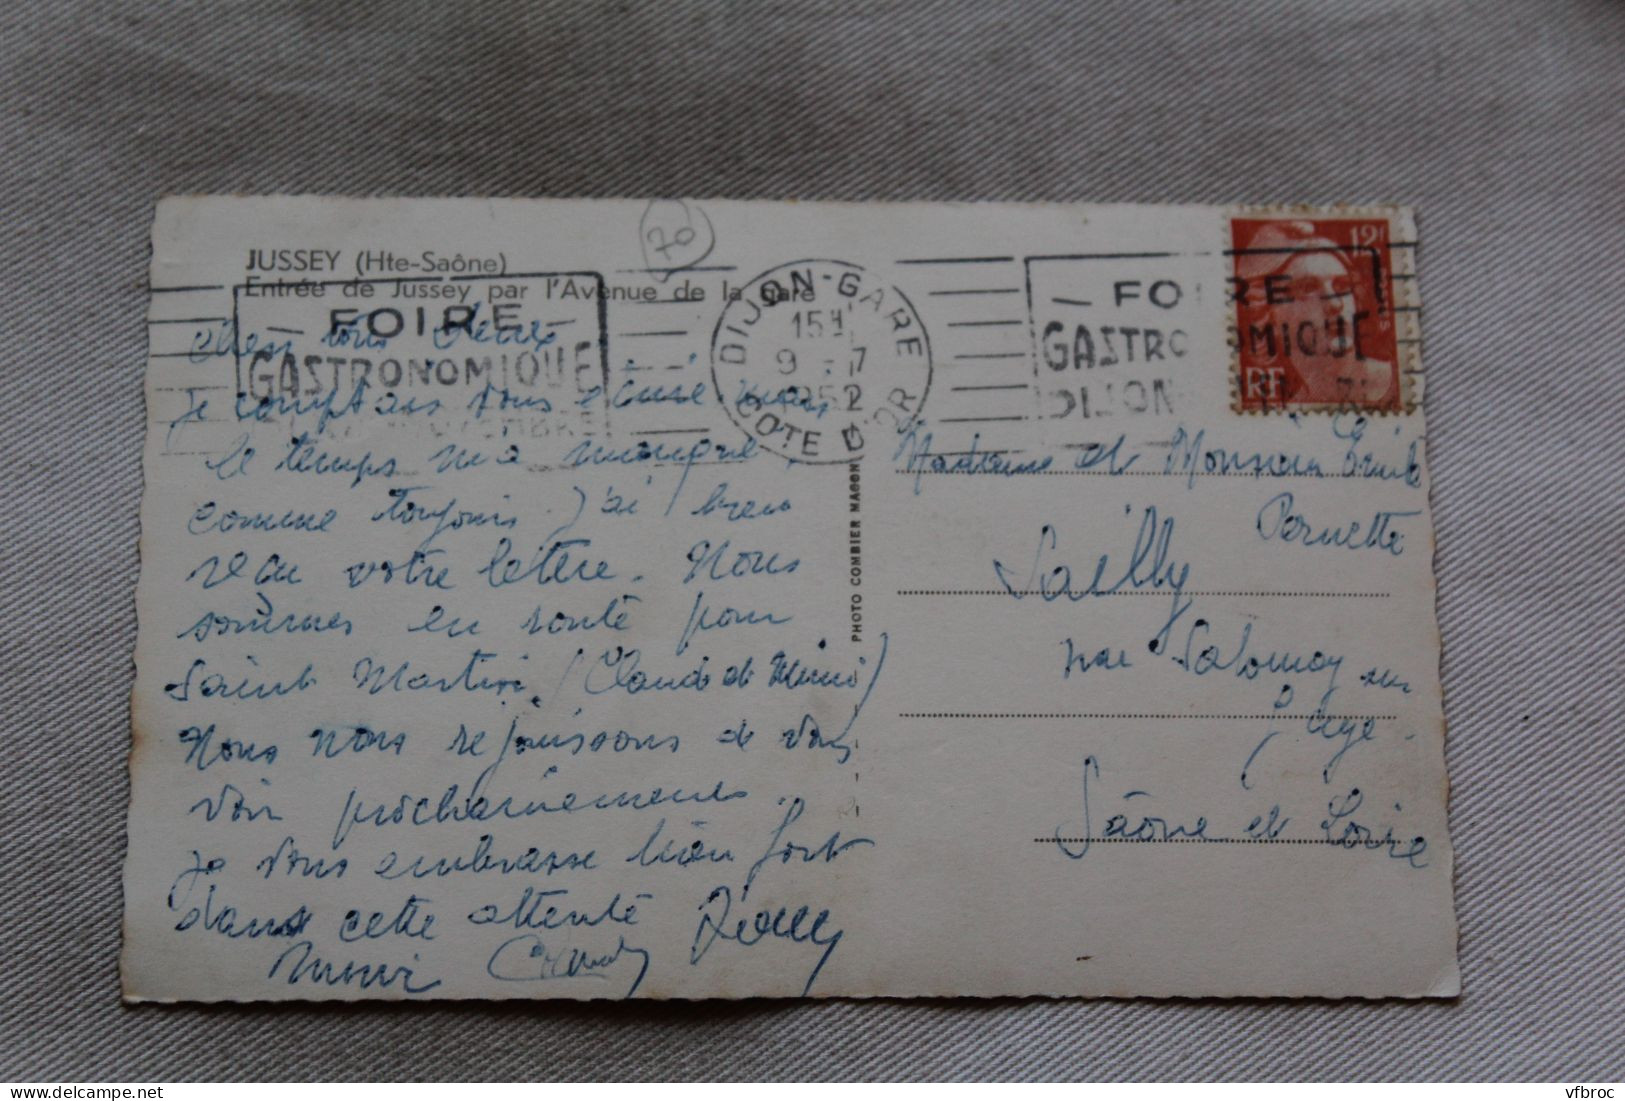 JUSSEY (Hte-Saône)
Entrée de Jussey par l'Avenue de la gare
70
FOIRE
GASTRONOMIQUE
DIJON-GARE
15H
9 - 7
1952
COTE D'OR
FOIRE
GASTRONOMIQUE
DIJON
12F
RF
Chers tous deux
je comptais vous écrire mais
le temps m'a manqué,
comme toujours. J'ai bien
reçu votre lettre. Nous
sommes en route pour
Saint Martin (Claude et Mimi)
Nous nous rejouissons de vous
voir prochainement.
Je vous embrasse bien fort
dans cette attente
Mimi
PHOTO COMBIER MACON
Madame et Monsieur
Pernette
Sailly
par Salornay sur
Guye.
Saône et Loire
vfbroc